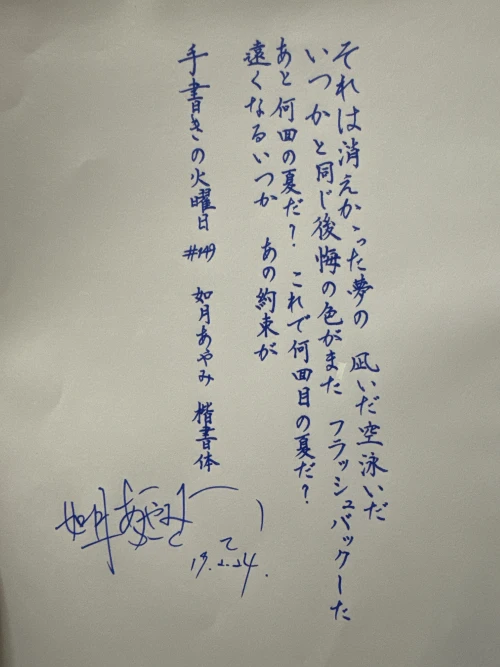 それは消えかった夢の 凪いだ空泳いだ
いつかと同じ後悔の色がまた フラッシュバックした
あと何回の夏だ? これで何回目の夏だ?
遠くなるいつか あの約束が
手書きの火曜日 #149 如月あやみ 楷書体
如月あやみ
19.2.24.